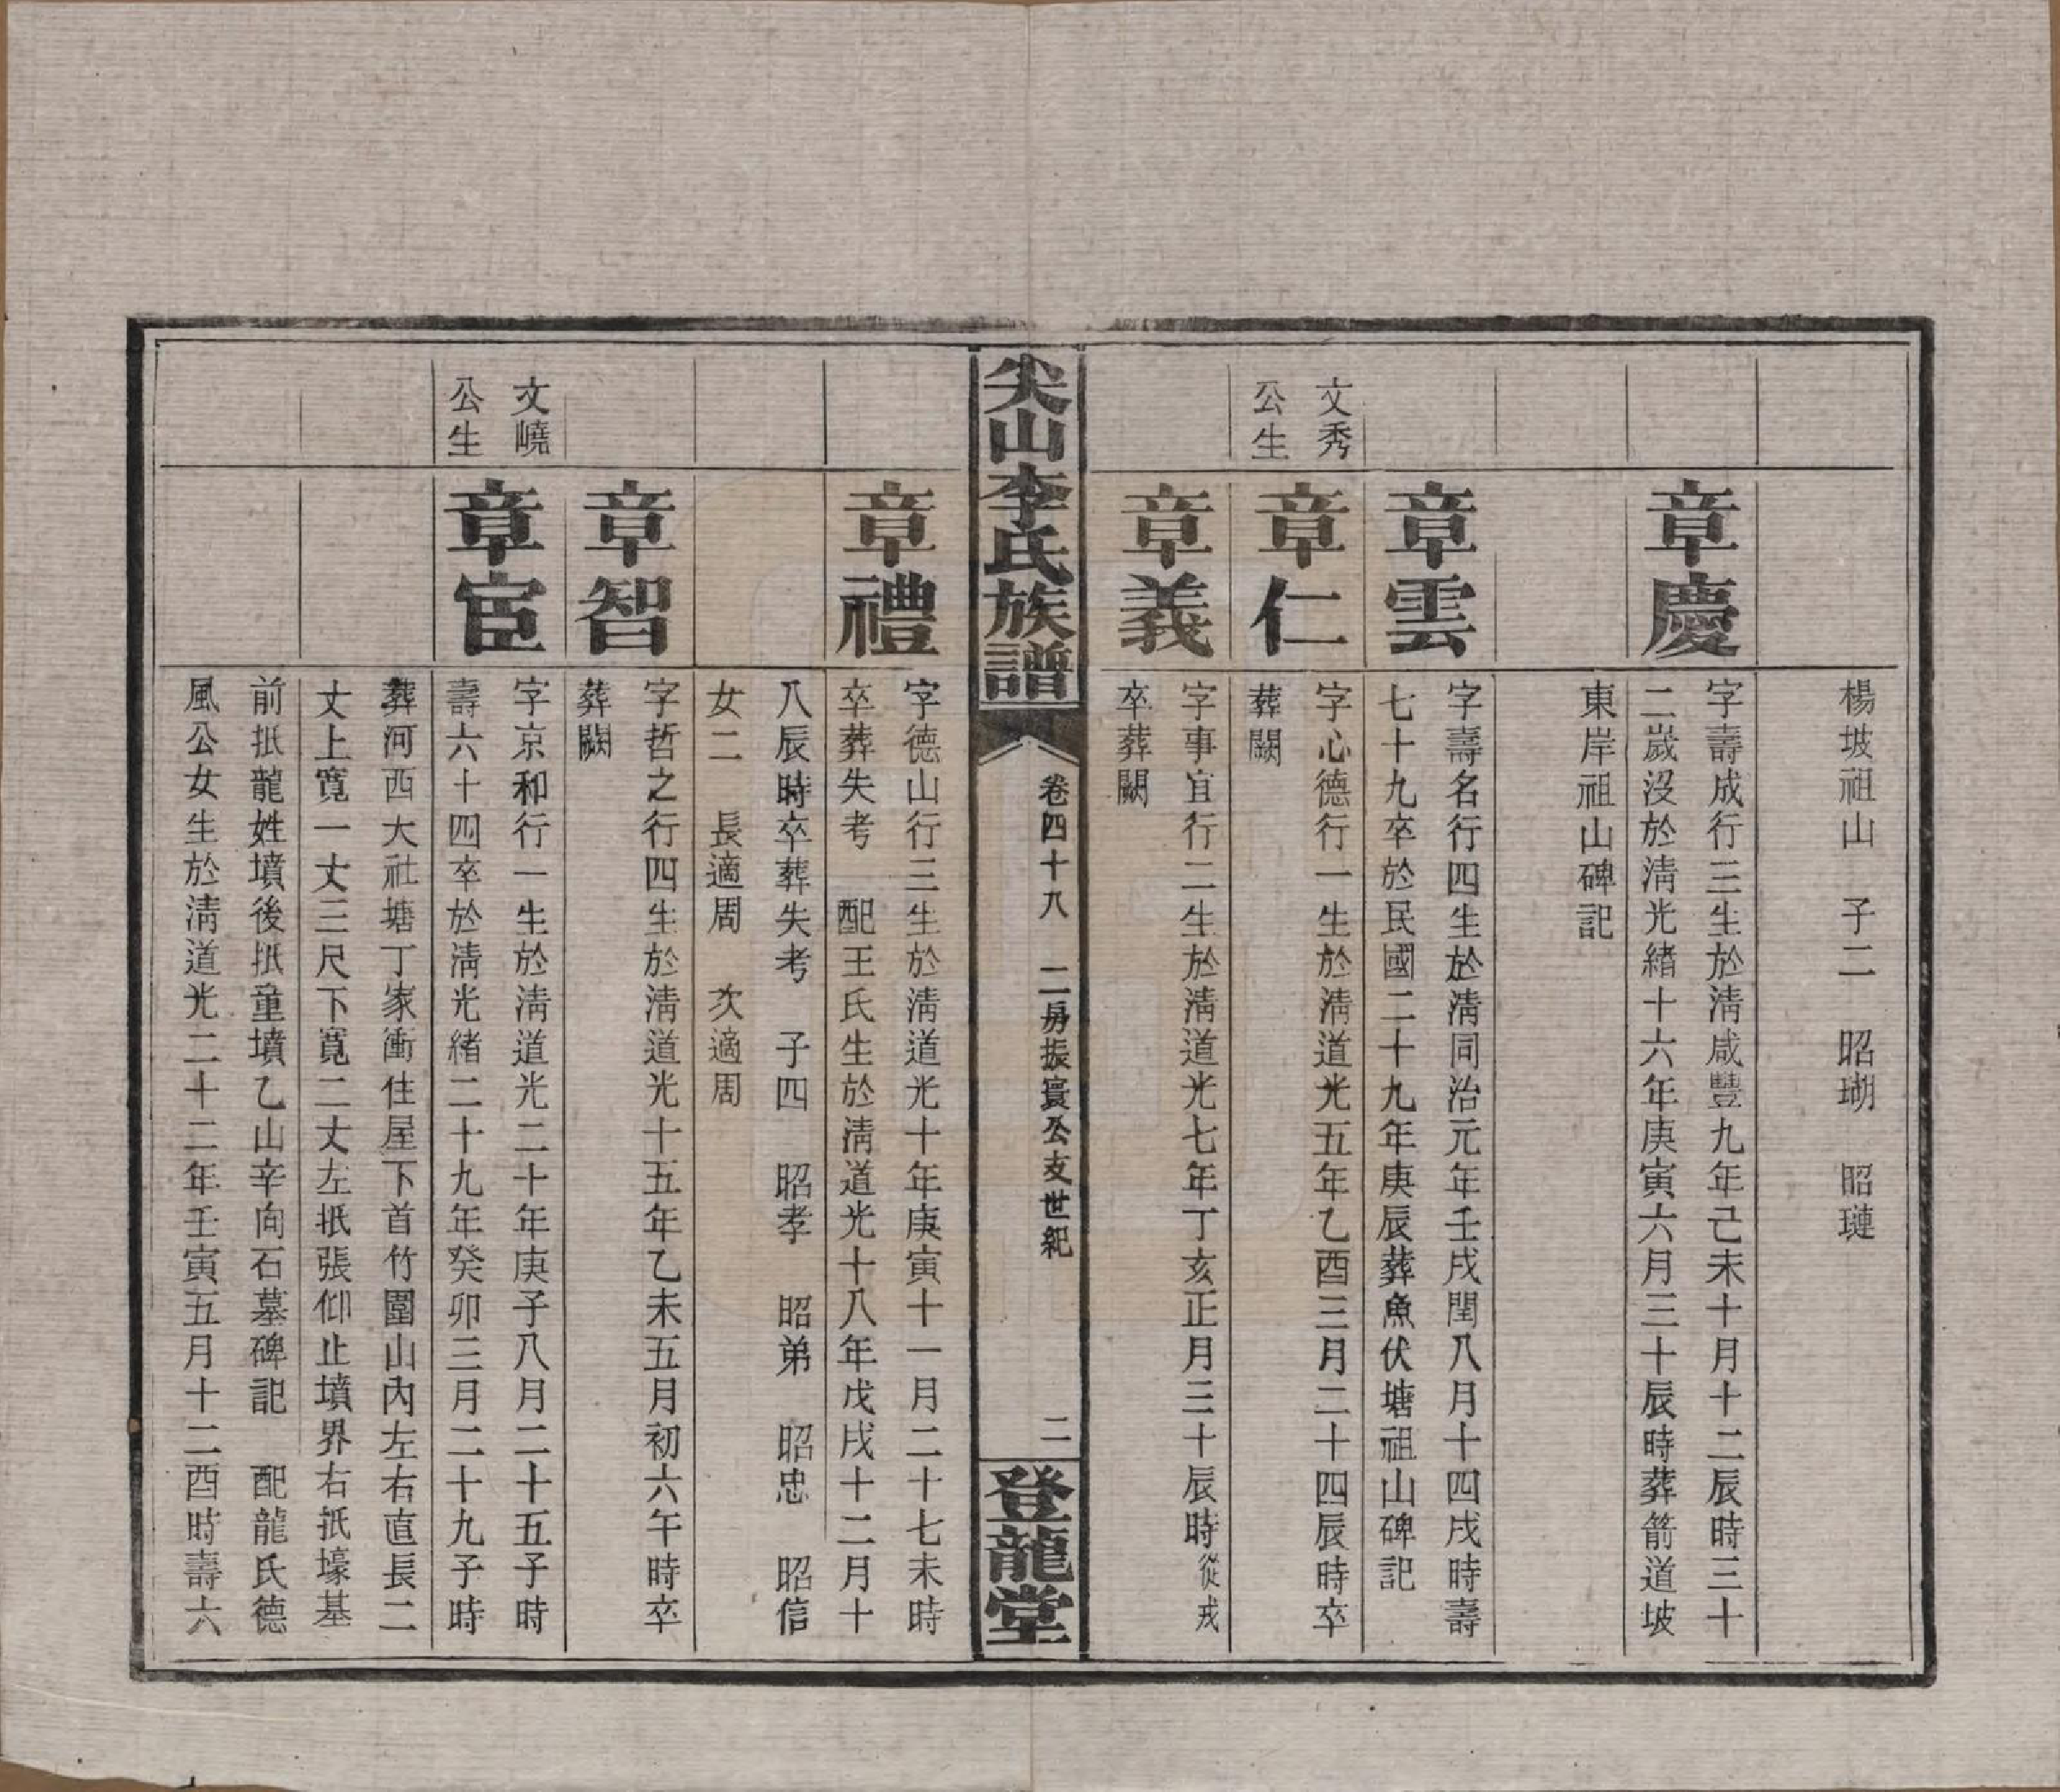 楊坡祖山　子二　昭瑚　昭璉
章慶
字壽成行三生於淸咸豐九年己未十月十二辰時三十
二歲沒於淸光緒十六年庚寅六月三十辰時葬箭道坡
東岸祖山碑記
章雲
字壽名行四生於淸同治元年壬戌閏八月十四戌時壽
七十九卒於民國二十九年庚辰葬魚伏塘祖山碑記
文秀
公生
章仁
字心德行一生於淸道光五年乙酉三月二十四辰時卒
葬闕
章義
字事宜行二生於淸道光七年丁亥正月三十辰時從戎
卒葬闕
尖山李氏族譜
卷四十八　二房振寰公支世紀
二
登龍堂
章禮
字德山行三生於淸道光十年庚寅十一月二十七未時
卒葬失考　配王氏生於淸道光十八年戊戌十二月十
八辰時卒葬失考　子四　昭孝　昭弟　昭忠　昭信
女二　長適周　次適周
章智
字哲之行四生於淸道光十五年乙未五月初六午時卒
葬闕
文嶢
公生
章宦
字京和行一生於淸道光二十年庚子八月二十五子時
壽六十四卒於淸光緒二十九年癸卯三月二十九子時
葬河西大社塘丁家衝住屋下首竹園山內左右直長二
丈上寬一丈三尺下寬二丈左抵張仰止墳界右抵壕基
前抵龍姓墳後抵童墳乙山辛向石墓碑記　配龍氏德
風公女生於淸道光二十二年壬寅五月十二酉時壽六